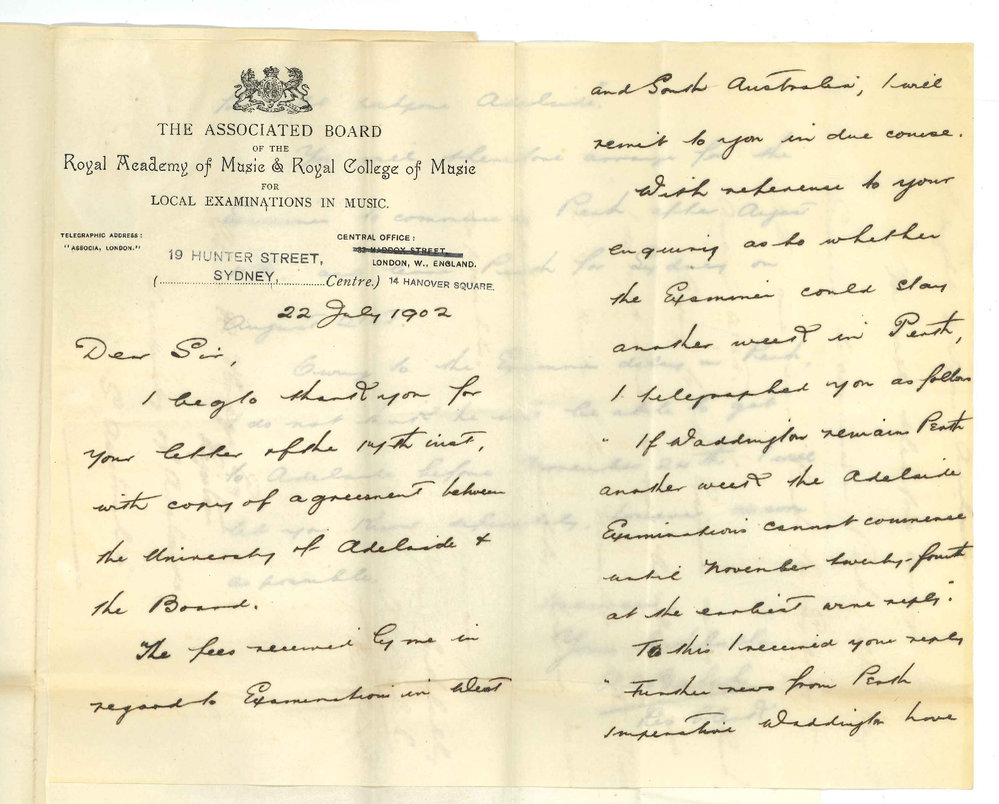 THE ASSOCIATED BOARD
OF THE
Royal Academy of Music & Royal College of Music
FOR
LOCAL EXAMINATIONS IN MUSIC.
TELEGRAPHIC ADDRESS:
"ASSOCIA, LONDON."
CENTRAL OFFICE:
32 MADDOX STREET,
LONDON, W., ENGLAND.
14 HANOVER SQUARE.
19 HUNTER STREET,
(SYDNEY, Centre.)
22 July 1902
Dear Sir,
I beg to thank you for
your letter of the 14th inst,
with copy of agreement between
the University of Adelaide &
the Board.
The fees received by me in
regard to Examinations in West
and South Australia, I will
remit to you in due course.
With reference to your
enquiring as to whether
the Examiner could stay
another week in Perth,
I telegraphed you as follows
" If Waddington remains Perth
another week the Adelaide
Examinations cannot commence
until November twenty-fourth
at the earliest wire reply."
To this I received your reply
" Further news from Perth
imperative Waddington have